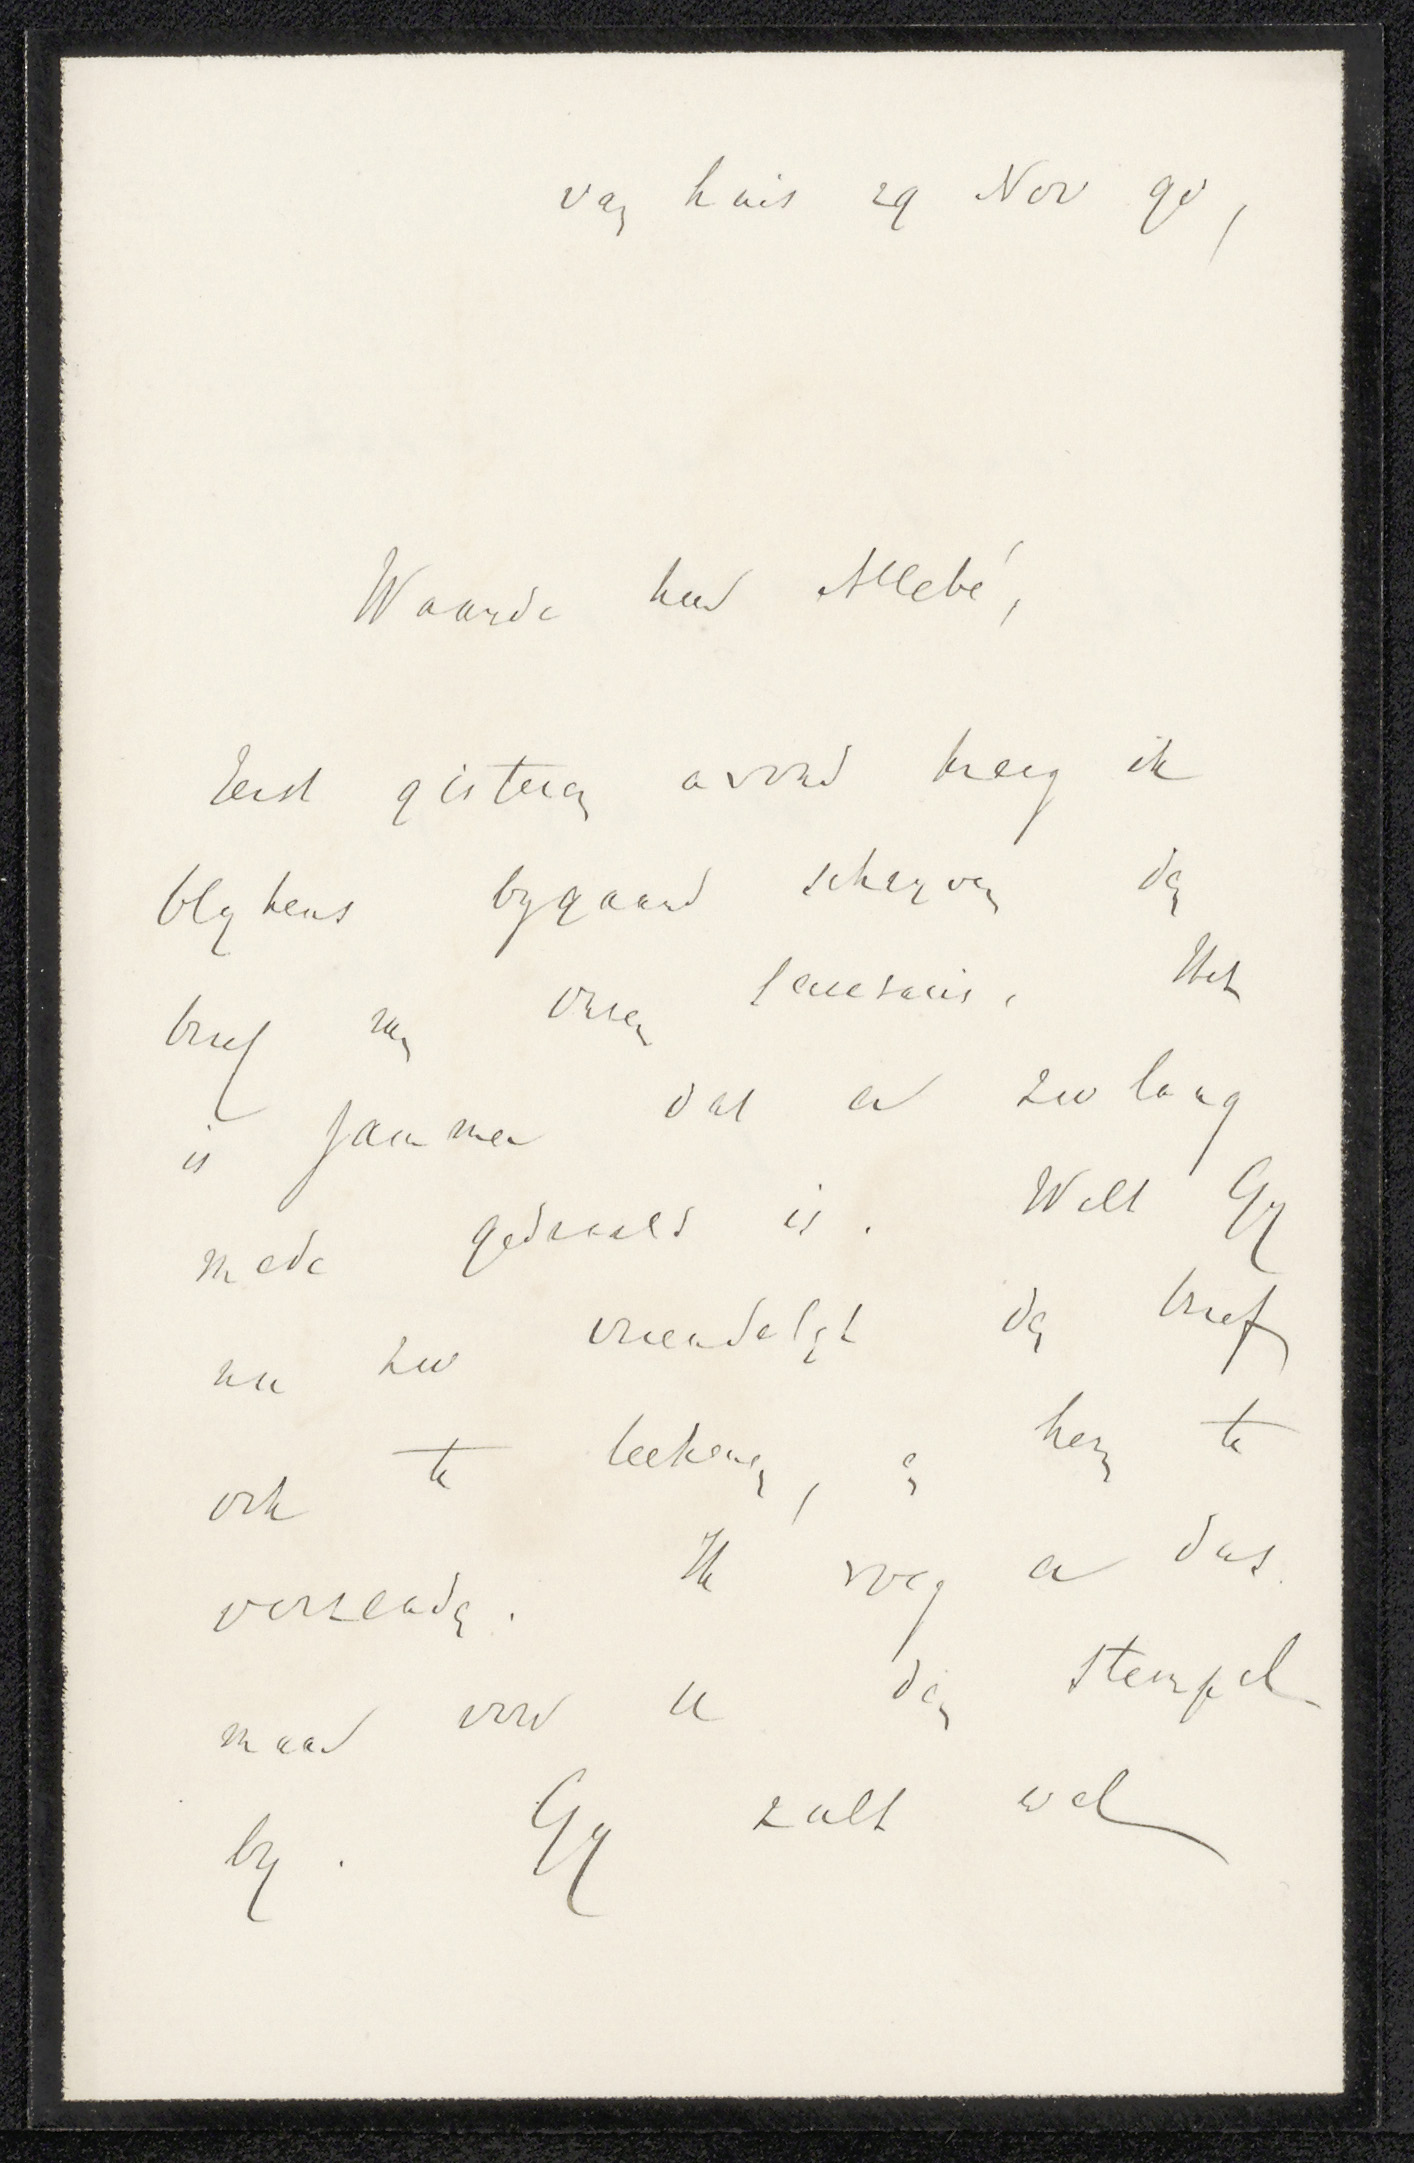 van huis 29 Nov 90,
Waarde heer Allebé,
Eerst gisteren avond kreeg ik
blykens bygaand schryven den
brief van onzen secretaris. Het
is jammer dat er zoo lang
mede gedraald is. Wilt Gy
nu zoo vriendelyk den brief
ook te teekenen, en hem te
verzenden. Ik voeg er dus
maar voor u den stempel
by. Gy zult wel